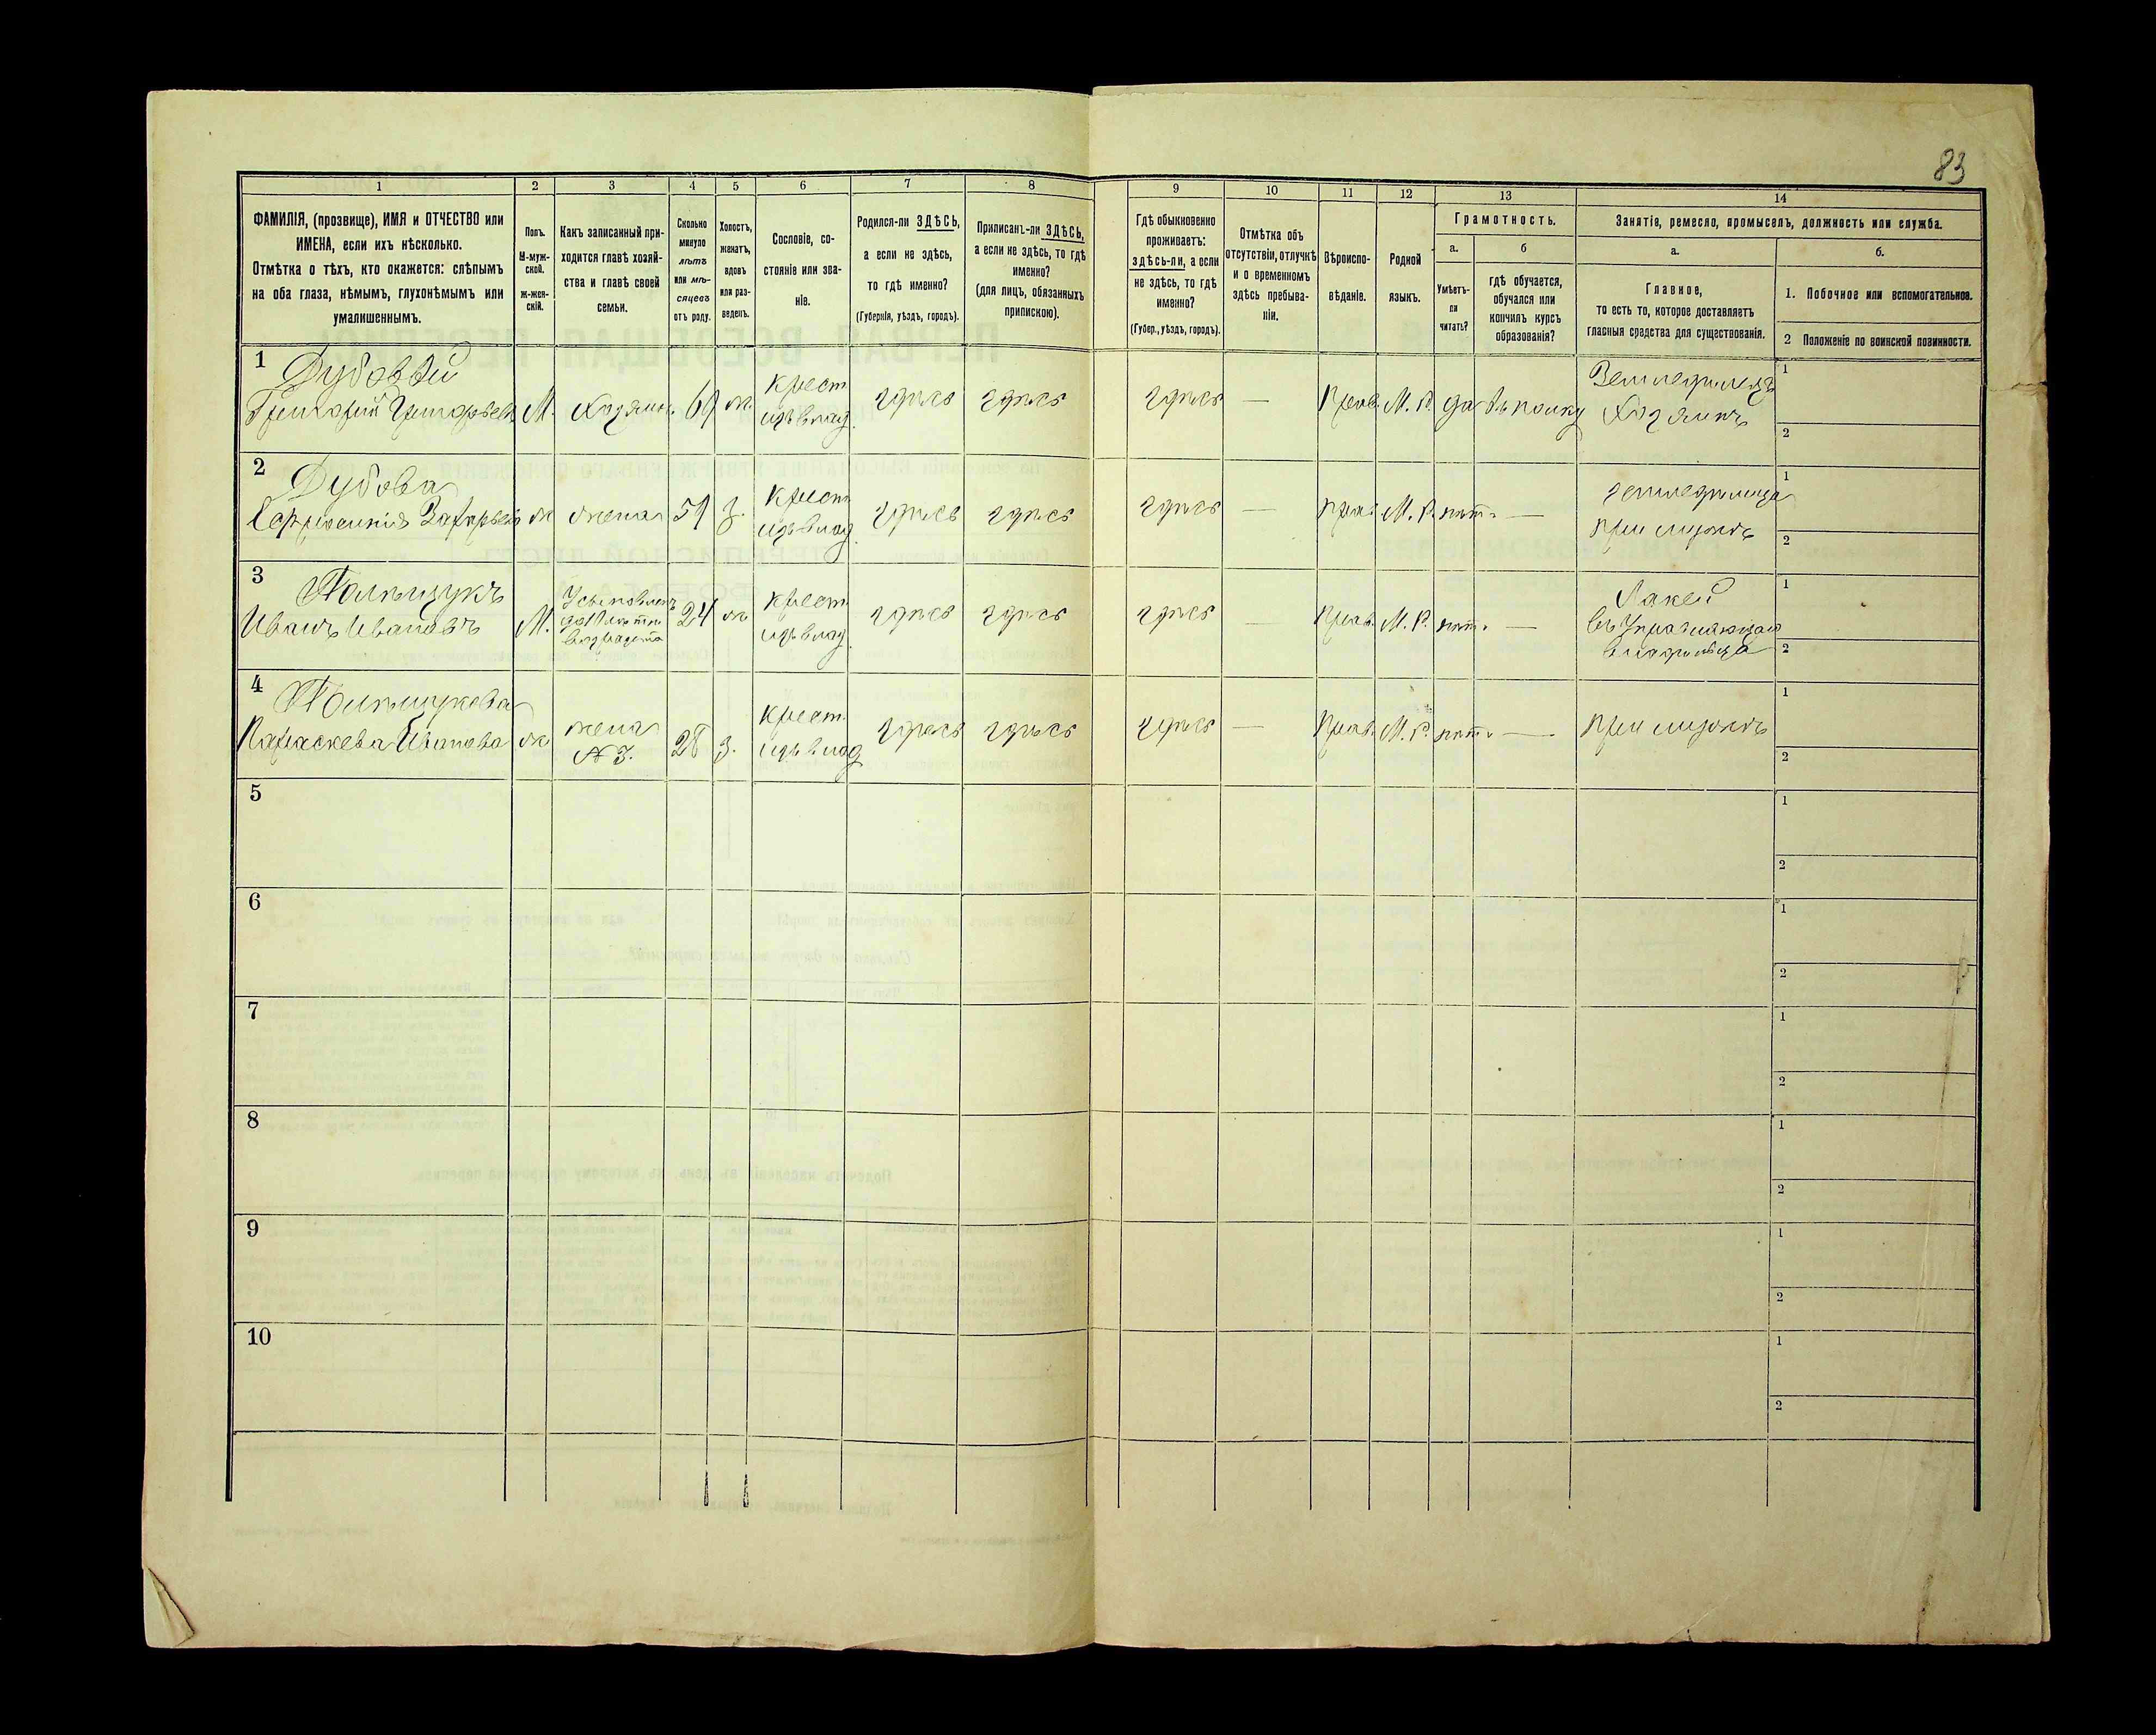 83
1 2 3 4 5 6 7 8 9 10 11 12 13 14
ФАМИЛІЯ, (прозвище), ИМЯ и ОТЧЕСТВО или
ИМЕНА, если ихъ нѣсколько.
Отмѣтка о тѣхъ, кто окажется: слѣпымъ
на оба глаза, нѣмымъ, глухонѣмымъ или
умалишеннымъ.
Полъ.
М-муж-
ской.
ж-жен-
скій.
Какъ записанный при-
ходится главѣ хозяй-
ства и главѣ своей
семьи.
Сколько
минуло
лѣтъ
или мѣ-
сяцевъ
отъ роду.
Холостъ,
женатъ,
вдовъ
или раз-
веденъ.
Сословіе, со-
стояніе или зва-
ніе.
Родился-ли ЗДѢСЬ,
а если не здѣсь,
то гдѣ именно?
(Губернія, уѣздъ, городъ).
Приписанъ-ли ЗДѢСЬ,
а если не здѣсь, то гдѣ
именно?
(для лицъ, обязанныхъ
припискою).
Гдѣ обыкновенно
проживаетъ:
здѣсь-ли, а если
не здѣсь, то гдѣ
именно?
(Губер., уѣздъ, городъ).
Отмѣтка объ
отсутствіи, отлучкѣ
и о временномъ
здѣсь пребыва-
ніи.
Вѣроиспо-
вѣданіе.
Родной
языкъ.
Грамотность.
а.
Умѣетъ-
ли
читать?
б
гдѣ обучается,
обучался или
кончилъ курсъ
образованія?
Занятіе, ремесло, промыселъ, должность или служба.
а.
Главное,
то есть то, которое доставляетъ
гласныя средства для существованія.
б.
1. Побочное или вспомогательное.
2 Положеніе по воинской повинности.
1
Дубовый
Григорий Григорьевъ
М.
Хозяинъ
69
ж.
Крест
изъ влад.
здѣсь
здѣсь
здѣсь
—
Прав.
М. Р.
да
въ полку
Земледѣлецъ
Хозяинъ
1
2
2
Дубова
ж
жена
59
з.
Крест
изъ влад.
здѣсь
здѣсь
здѣсь
—
Прав.
М. Р.
нѣтъ
—
земледѣлица
при мужѣ
1
2
3
Иванъ Ивановъ
М.
24
ж
Крест
изъ влад.
здѣсь
здѣсь
здѣсь
—
Прав.
М. Р.
нѣтъ
—
Лакей
1
2
4
Параскева Иванова
ж
жена
№ 3.
28
з.
Крест.
изъ влад
здѣсь
здѣсь
здѣсь
—
Прав.
М. Р.
нѣтъ
—
при мужѣ
1
2
5
1
2
6
1
2
7
1
2
8
1
2
9
1
2
10
1
2